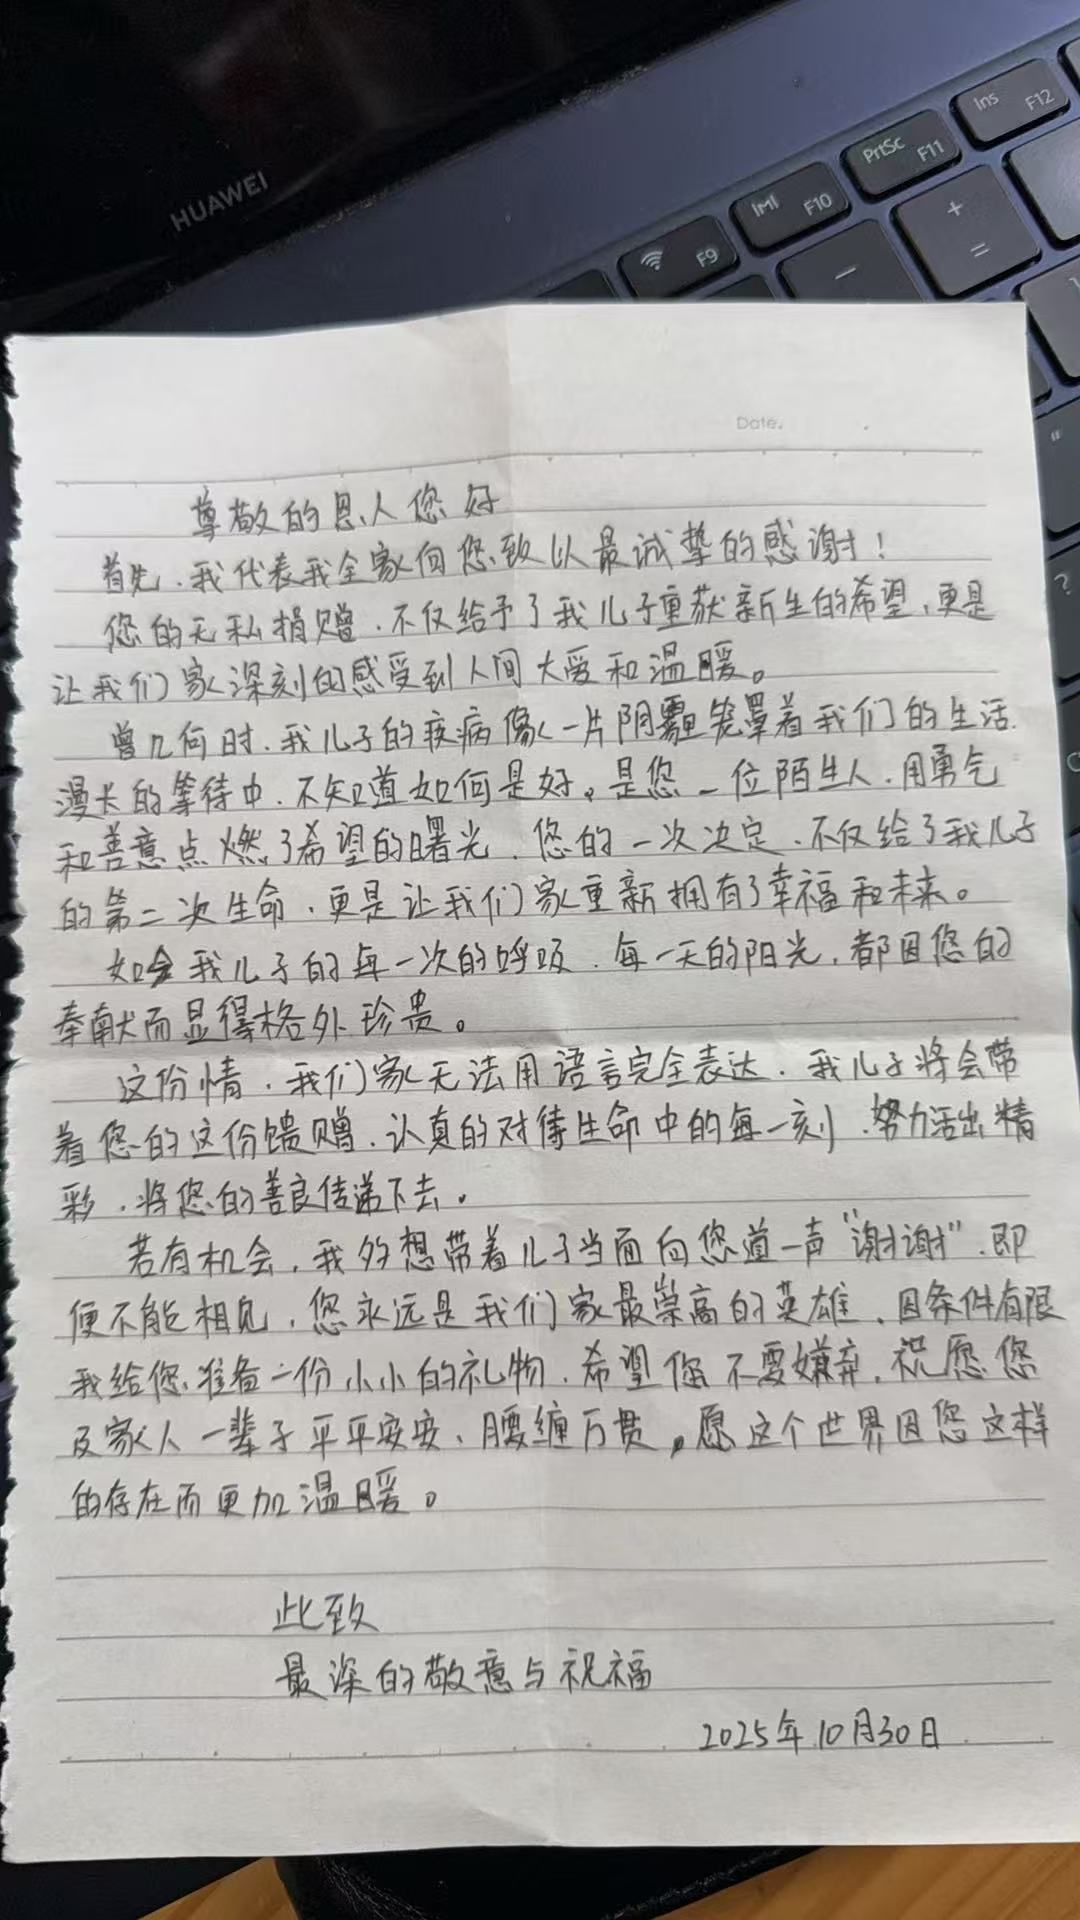 HUAWEI
Ins F12
PrtSc F11
F10
F9
+
=
-
Date.
尊敬的恩人您好
首先、我代表我全家向您致以最诚挚的感谢!
您的无私捐赠、不仅给予了我儿子重获新生的希望、更是
让我们家深刻的感受到人间大爱和温暖。
曾几何时、我儿子的疾病像一片阴霾笼罩着我们的生活.
漫长的等待中、不知道如何是好。是您一位陌生人、用勇气
和善意点燃了希望的曙光、您的一次决定、不仅给了我儿子
的第二次生命、更是让我们家重新拥有了幸福和未来。
如今我儿子的每一次的呼吸、每一天的阳光,都因您的
奉献而显得格外珍贵。
这份情、我们家无法用语言完全表达、我儿子将会带
着您的这份馈赠、认真的对待生命中的每一刻、努力活出精
彩、将您的善良传递下去。
若有机会,我多想带着儿子当面向您道一声"谢谢"、即
便不能相见,您永远是我们家最崇高的英雄、因条件有限
我给您准备一份小小的礼物、希望您不要嫌弃,祝愿您
及家人一辈子平平安安、腰缠万贯。愿这个世界因您这样
的存在而更加温暖。
此致
最深的敬意与祝福
2025年10月30日